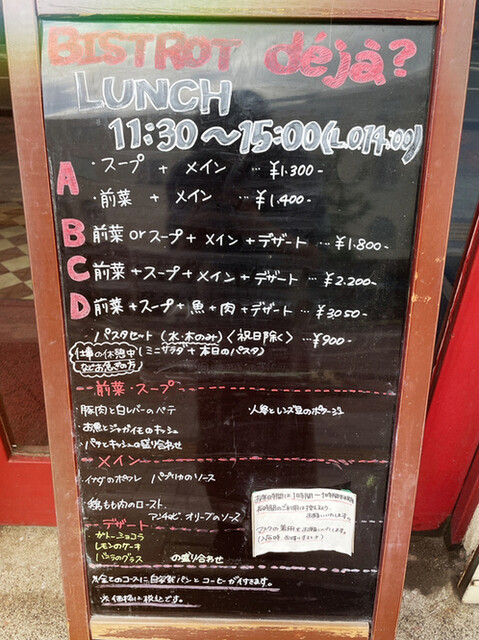 BISTROT déjà?
LUNCH
11:30〜15:00(L.O14:00)
A ・スープ + メイン … ¥1.300-
・前菜 + メイン … ¥1.400-
B 前菜 or スープ + メイン + デザート … ¥1.800-
C 前菜 + スープ + メイン + デザート … ¥2.200-
D 前菜 + スープ + 魚 + 肉 + デザート … ¥3,050-
・パスタセット (水・木のみ) 〈祝日除く〉 … ¥900-
仕事の休憩中 (ミニサラダ + 本日のパスタ)
などお急ぎの方
前菜・スープ
・豚肉と白レバーのパテ ・人参とレンズ豆のポタージュ
・お魚とジャガイモのキッシュ
・パテとキッシュの盛り合わせ
メイン
・イナダのポワレ パプリカのソース
・鶏もも肉のロースト
アンチョビ、オリーブのソース
デザート
ガトーショコラ
レモンのケーキ
バニラのグラス の盛り合わせ
※全てのコースに自家製パンとコーヒーが付きます。
※価格は税込です。